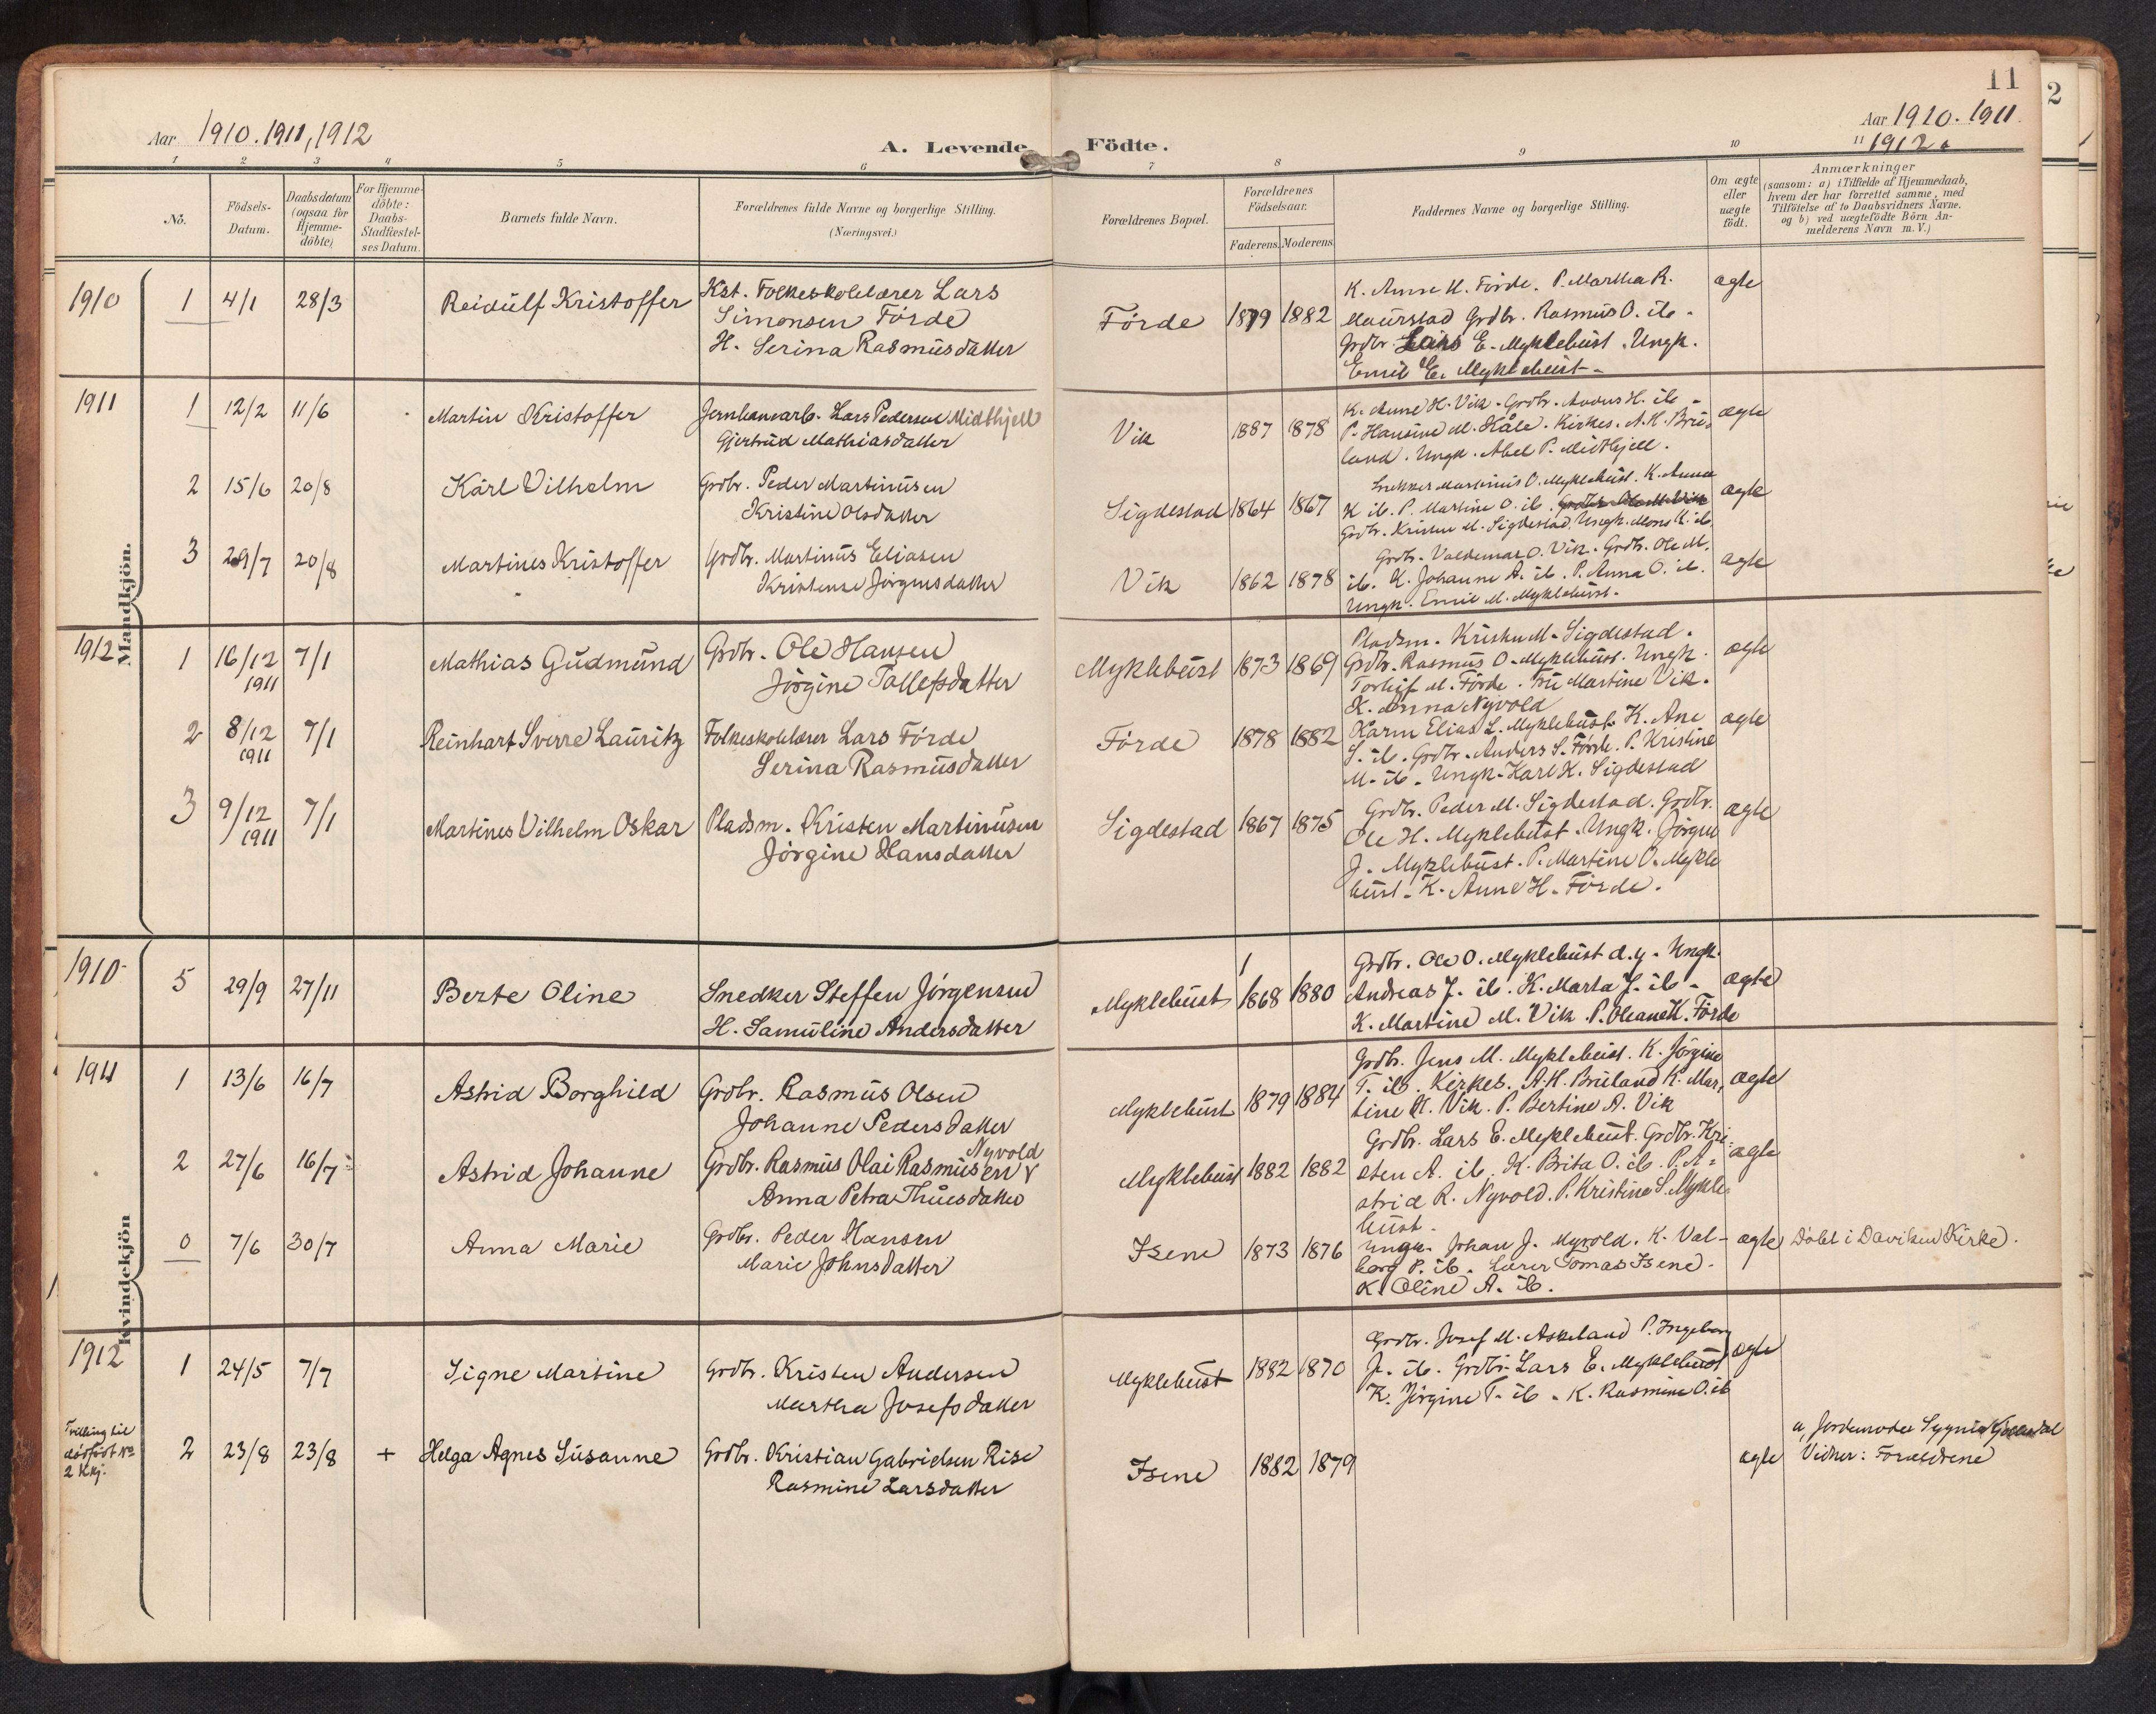 11
2
Aar 1910. 1911, 1912
A. Levende Födte.
Aar 1910. 1911.
1912.
1 2 3 4 5 6 7 8 9 10 11
No.
Födsels-
Datum.
Daabsdatum
(ogsaa for
Hjemme-
döbte)
For Hjemme-
döbte:
Daabs-
Stadfæstel-
ses Datum.
Barnets fulde Navn.
Forældrenes fulde Navne og borgerlige Stilling.
(Næringsvei.)
Forældrenes Bopæl.
Forældrenes
Födselsaar.
Faderens. Moderens.
Faddernes Navne og borgerlige Stilling.
Om ægte
eller
uægte
födt.
Anmærkninger
(saasom: a) i Tilfælde af Hjemmedaab,
hvem der har forrettet samme, med
Tilföielse af to Daabsvidners Navne.
og b) ved uægtefödte Börn An-
melderens Navn m. V.)
Mandkjön.
1910 1 4/1 28/3 Reidulf Kristoffer
Kst. Folkeskolelærer Lars
Simonsen Förde
H. Serina Rasmusdatter
Förde 1879 1882
K. Anne H. Förde. P. Martha R.
Maurstad Grdbr. Rasmus O. ib.
Grdbr. Lars E. Myklebust. Ungk.
Emil E. Myklebust.
ægte
1911 1 12/2 11/6 Martin Kristoffer
Jernbanearb. Lars Pedersen Midthjell
Gjertrud Mathiasdatter
Vik 1887 1878
K. Anne H. Vik. Grdbr. H. ib.
P. Hansine M. Kirkes. A. H. Bru-
land. Ungk. Abel P. Midthjell.
ægte
2 15/6 20/8 Karl Vilhelm
Grdbr. Peder Martinusen
Kristine Olsdatter
Sigdestad 1864 1867
Snekker Martinus O. Myklebust. K. Anna
K. ib. P. Martine O. ib. Grdbr. Ole M. Vik
Grdbr. Kristen M. Sigdestad. Ungk. Mons K. ib.
ægte
3 29/7 20/8 Martines Kristoffer
Grdbr. Martinus Eliasen
Kristense Jörgensdatter
Vik 1862 1878
Grdbr. Valdemar O. Vik. Grdbr. Ole M.
ib. K. Johanne A. ib. P. Anna O. ib.
Ungk. Emil M. Myklebust.
ægte
1912 1 16/12 1911 7/1 Mathias Gudmund
Grdbr. Ole Hansen
Jörgine Tollefsdatter
Myklebust 1873 1869
Pladsm. Kristen M. Sigdestad.
Grdbr. Rasmus O. Myklebust. Ungk.
Torleif M. Förde. Fru Martine Vik.
K. Anna Nyvold
ægte
2 8/12 1911 7/1 Reinhart Sverre Lauritz
Folkeskolelærer Lars Förde
Serina Rasmusdatter
Förde 1878 1882
Elias L. Myklebust. K. Ane
S. ib. Grdbr. Anders S. Förde. P. Kristine
M. ib. Ungk. Karl K. Sigdestad
ægte
3 9/12 1911 7/1 Martines Vilhelm Oskar
Pladsm. Kristen Martinusen
Jörgine Hansdatter
Sigdestad 1867 1875
Grdbr. Peder M. Sigdestad. Grdbr.
Ole H. Myklebust. Ungk. Jörgen
J. Myklebust. P. Martine O. Mykle
bust. K. Anne H. Förde.
ægte
Kvindekjön
1910 5 29/9 27/11 Berte Oline
Snedker Steffen Jörgensen
H. Samuline Andersdatter
Myklebust 1868 1880
Grdbr. Ole O. Myklebust d.y. Ungk.
Andreas J. ib. K. Marta J. ib.
K. Martine M. Vik. P. Oleane K. Förde
ægte
1911 1 13/6 16/7 Astrid Borghild
Grdbr. Rasmus Olsen
Johanne Pedersdatter
Myklebust 1879 1884
Grdbr. Jens M. Myklebust. K. Jörgine
T. ib. Kirkes. A. H. Bruland K. Mar-
tine M. Vik. P. Bertine A. Vik
ægte
2 27/6 16/7 Astrid Johanne
Grdbr. Rasmus Olai Rasmusen Nyvold
Anna Petra Thuesdatter
Myklebust 1882 1882
Grdbr. Lars E. Myklebust. Grdbr. Kri-
sten A. ib. K. Brita O. ib. P. A-
strid R. Nyvold. P. Kristine S. Mykle-
bust.
ægte
0 7/6 30/7 Anna Marie
Grdbr. Peder Hansen
Marie Johnsdatter
Isene 1873 1876
Ungk. Johan J. Myvold. K. Val-
borg P. ib. Lærer Tomas Isene.
K. Oline A. ib.
ægte
Döbt i Daviken Kirke.
1912 1 24/5 7/7 Signe Martine
Grdbr. Kristen Andersen
Martha Josefsdatter
Myklebust 1882 1870
Grdbr. Josef M. Askeland P. Ingeborg
J. ib. Grdbr. Lars E. Myklebust
K. Jörgine T. ib. K. Rasmine O. ib
ægte
Tvilling til
dödfödt No
2 Kkj.
2 23/8 23/8 + Helga Agnes Susanne
Grdbr. Kristian Gabrielsen Rise
Rasmine Larsdatter
Isene 1882 1879
ægte
a, Jordemoder
Vidner: Forældrene